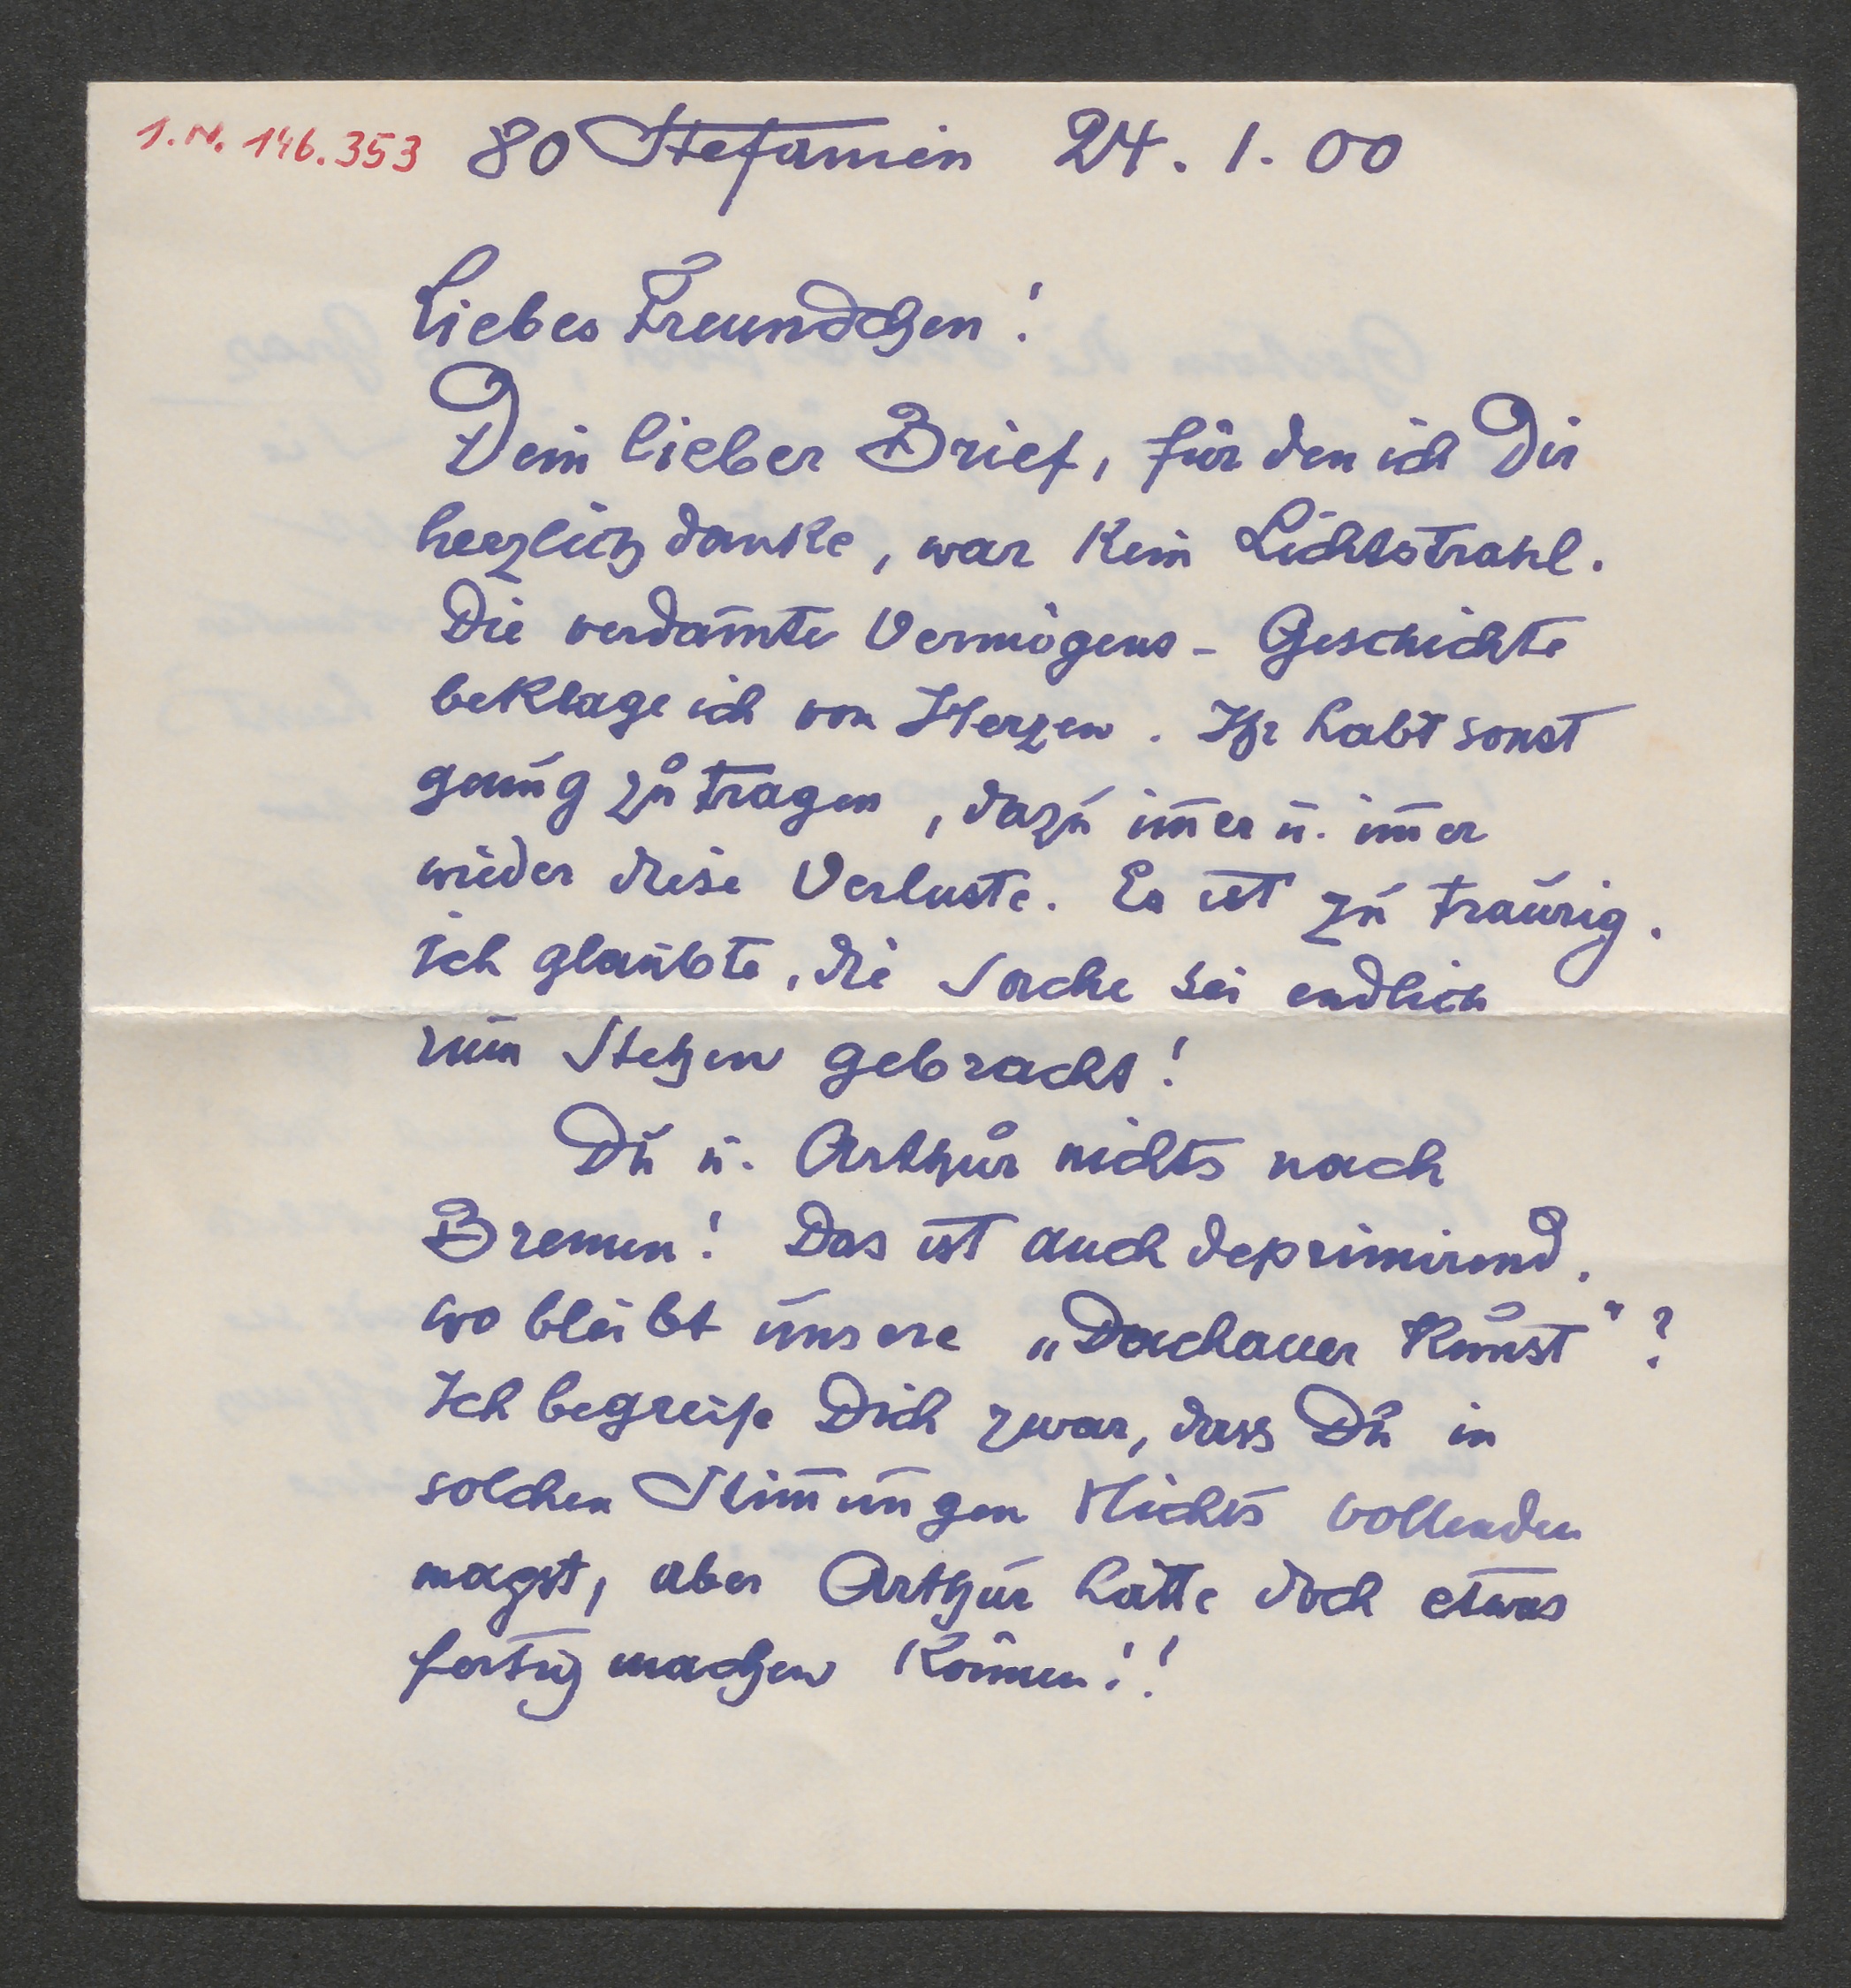 I.N. 146.353 80 Stefanien 24. 1. 00
Liebes Freundchen!
Dein lieber Brief, für den ich Dir
herzlich danke, war kein Lichtstrahl.
Die verdam̄te Vermögens-Geschichte
beklage ich von Herzen. Ihr habt sonst
genug zu tragen, dazu im̄er u. im̄er
wieder diese Verluste. Es ist zu traurig.
ich glaubte, die Sache sei endlich
zum Stehen gebracht!
Du u. Arthur nichts nach
Bremen! Das ist auch deprimirend.
wo bleibt unsere „Dachauer Kunst"?
Ich begreife Dich zwar, dass Du in
solchen Stim̄ungen Nichts vollenden
magst, aber Arthur hätte doch etwas
fertig machen können!!